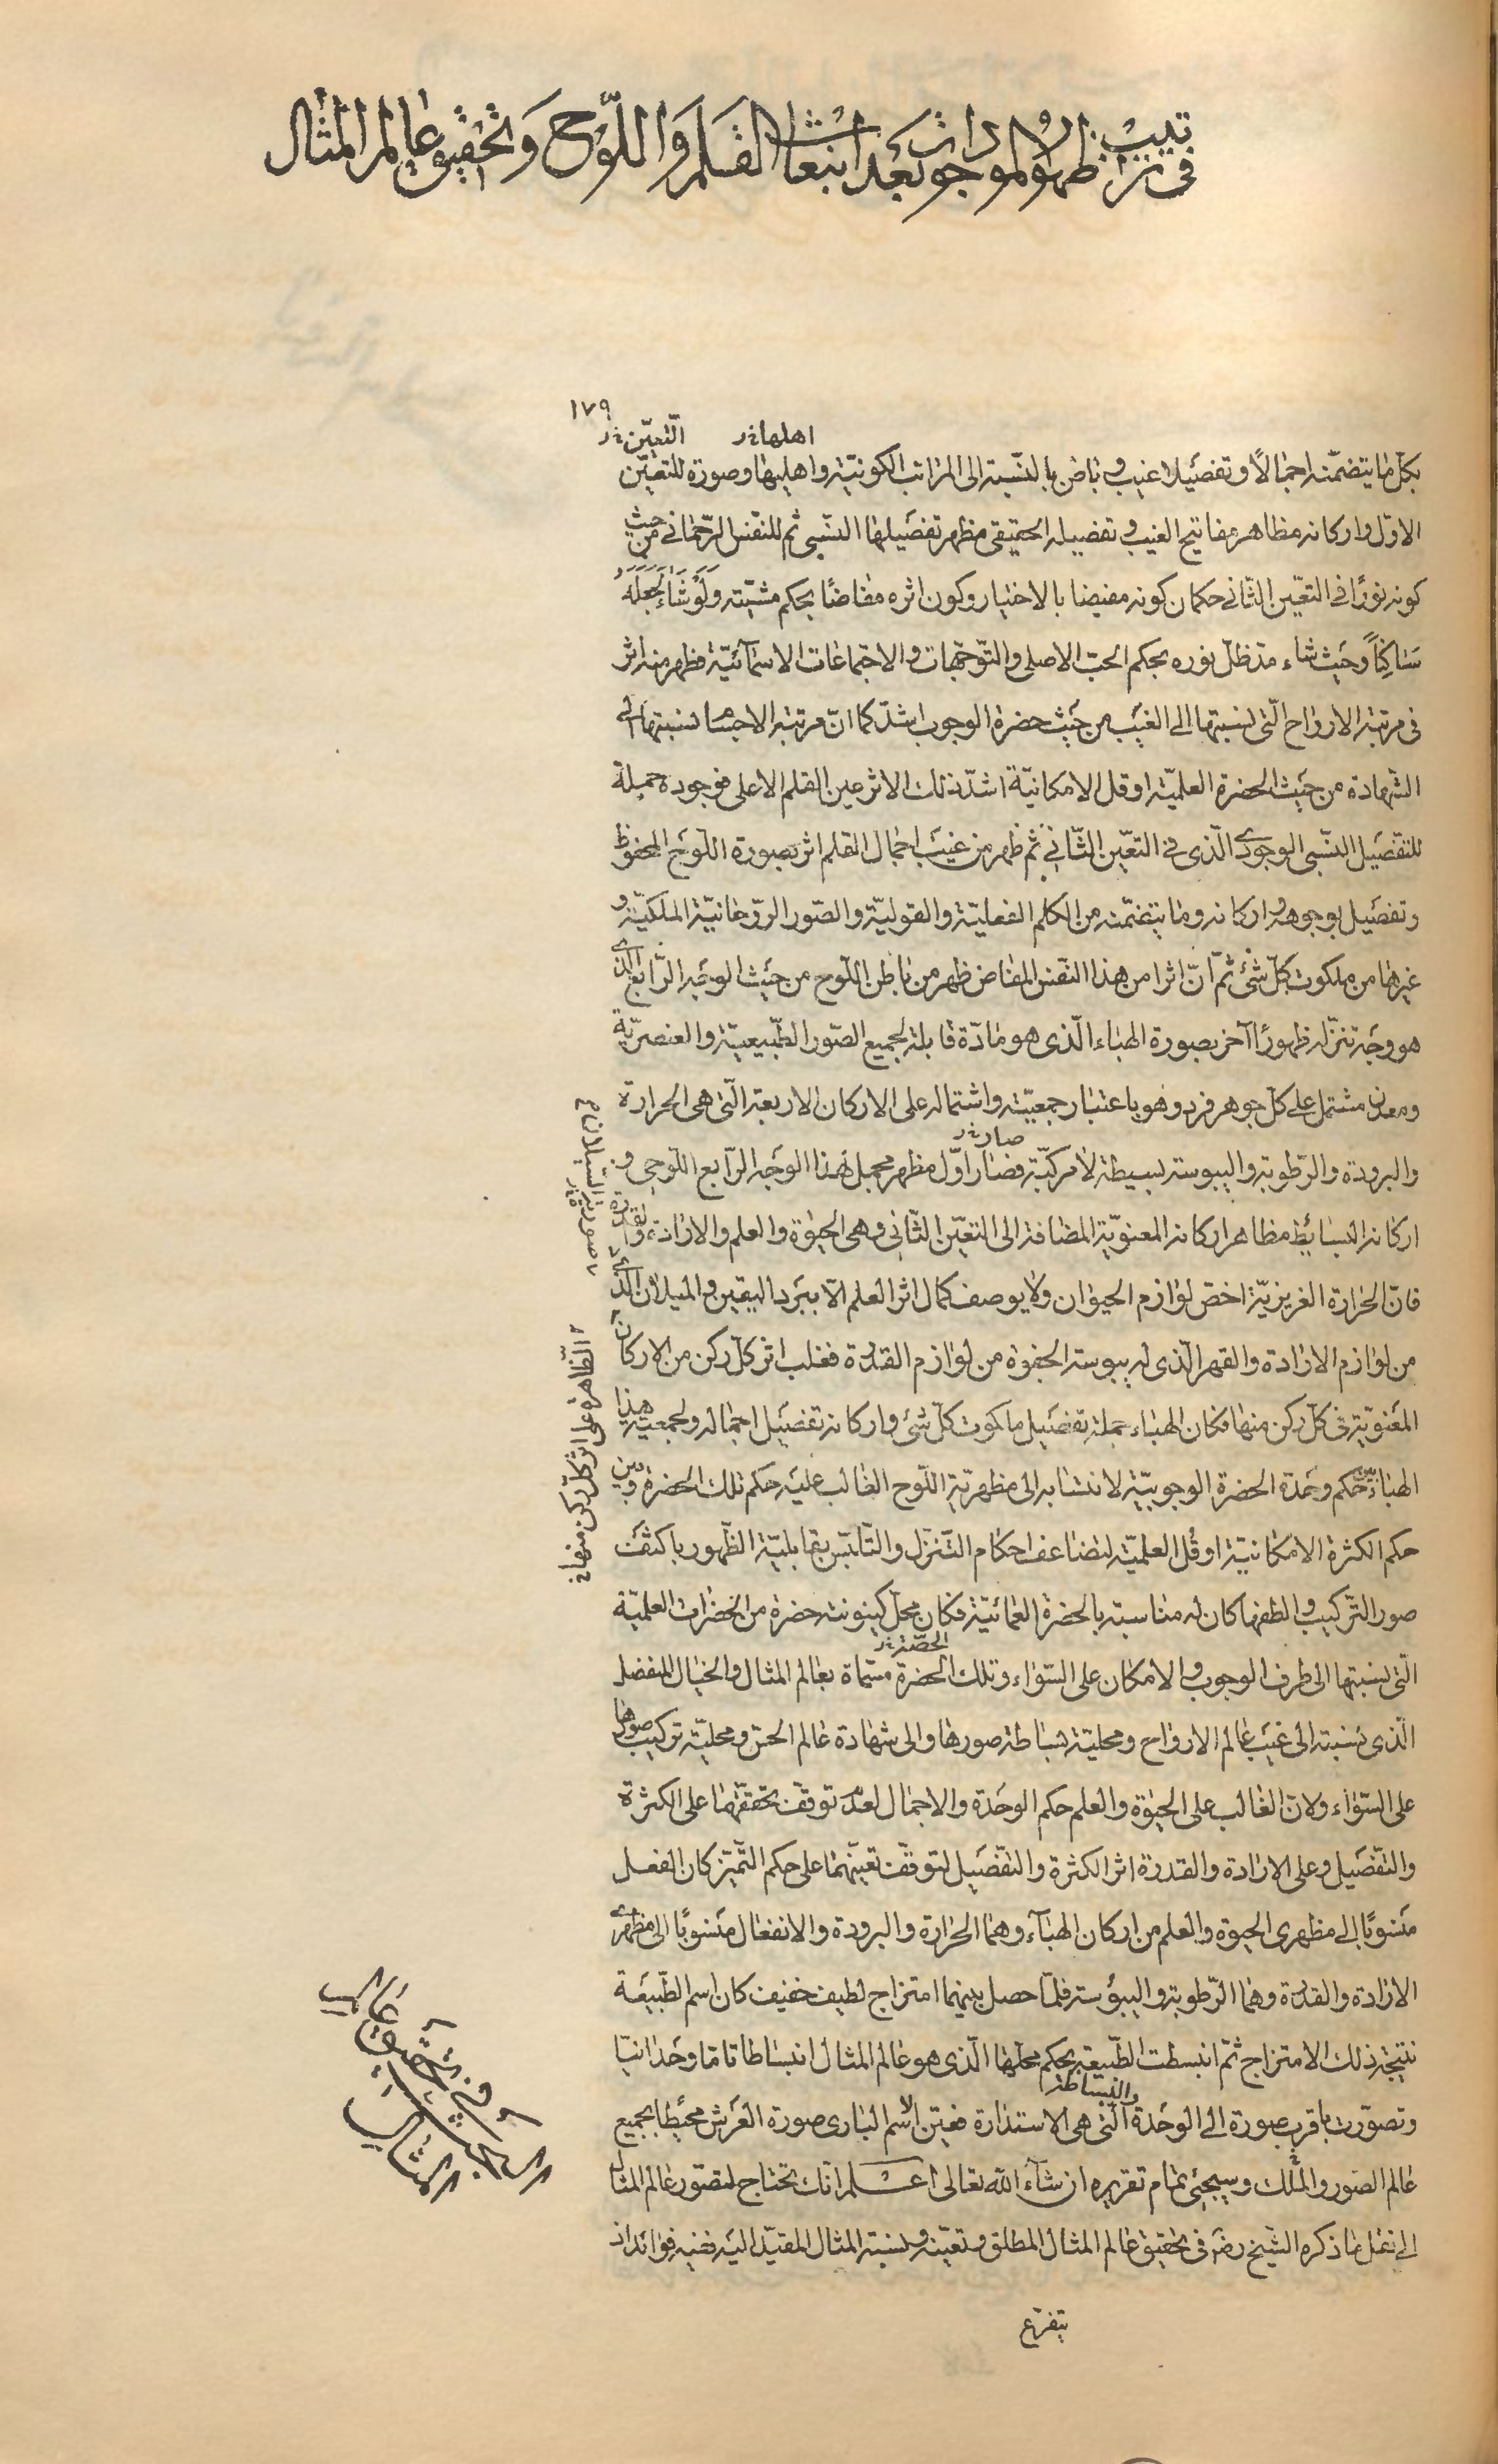 فى ترتيب ظهور الموجودات بعد انبعاث القلم واللوح وتحقيق عالم المثال
١٧٩
اهلها خ‌ر
التّعيّن خ‌ر
بكلّ ما يتضمّنه اجمالًا وتفصيلا غيب وباطن بالنّسبة الى المراتب الكونيّة واهليها وصورة للتعيّن
الاوّل واركانه مظاهر مفاتيح الغيب وتفصيله الحقيقى مظهر تفصيلها النّسبى ثم للنفس الرّحمانى من حيث
كونه نورًا فى التعيّن الثّانى حكمان كونه مفيضا بالاختيار وكون اثره مفاضًا بحكم مشيّته وَلَوْ شَاءَ لَجَعَلَهُ
سَاكِنًا وحيث شاء مدّ ظلّ نوره بحكم الحبّ الاصلى والتّوجّهات والاجتماعات الاسمآئيّة فظهر منه اثر
فى مرتبة الارواح الّتى نسبتها الى الغيب من حيث حضرة الوجوب اشدّ كما انّ مرتبة الاجسام نسبتها الى
الشّهادة من حيث الحضرة العلميّة او قل الامكانيّة اشدّ ذلك الاثر عين القلم الاعلى فوجوده جميلة
للتفصيل النّسبى الوجودى الّذى فى التعيّن الثّانى ثم ظهر من غيب اجمال القلم اثر بصورة اللّوح المحفوظ
وتفصيل بوجوهه واركانه وما يتضمّنه من الكلم الفعليّة والقوليّة والصّور الرّوحانيّة الملكيّة و
غيرها من ملكوت كلّ شئ ثم انّ اثرا من هذا النفس المفاض ظهر من باطن اللّوح من حيث الوجه الرّابع الّذى
هو وجه تنزّله ظهورًا آخر بصورة الهباء الّذى هو مادّة قابلة لجميع الصّور الطّبيعيّة والعنصريّة
ومعدن مشتمل على كلّ جوهر فرد وهو باعتبار جمعيّته واشتماله على الاركان الاربعة الّتى هى الحرارة
صار خ‌ر
والبرودة والرّطوبة واليبوسة بسيطة لا مركّبة فصار اوّل مظهر مجمل لهذا الوجه الرّابع اللّوحى و
اركانه البسائط مظاهر اركانه المعنويّة المضافة الى التعيّن الثّانى وهى الحيوة والعلم والارادة والقدرة
فانّ الحرارة الغريزيّة اخصّ لوازم الحيوان ولا يوصف كمال اثر العلم الّا ببرد اليقين والميلان الّذى
من لوازم الارادة والقهر الّذى له يبوسة الجفوة من لوازم القدرة فغلب اثر كلّ ركن من الاركان
المعنويّة فى كلّ ركن منها فكان الهباء جملة تفصيل ملكوت كلّ شئ واركانه تفصيل اجماله ولجمعية هذا
الهباء بين حكم وحدة الحضرة الوجوبيّة لانتشابه الى مظهريّة اللّوح الغالب عليه حكم تلك الحضرة وبين
حكم الكثرة الامكانيّة او قل العلميّة لتضاعف احكام التّنزّل والتّلبّس بقابليّة الظّهور باكثف
صور التّركيب والطفها كان له مناسبة بالحضرة العمائيّة فكان محلّ كينونته حضرة من الحضرات العلميّة
الحصّة خ‌ر
الّتى نسبتها الى طرف الوجوب والامكان على السّواء وتلك الحضرة مسمّاة بعالم المثال والخيال المنفصل
الّذى نسبته الى غيب عالم الارواح ومحليّة بساطة صورها والى شهادة عالم الحسّ ومحليّة تركيب صورها
على السّواء ولانّ الغالب على الحيوة والعلم حكم الوحدة والاجمال لعدم توقّف تحقّقهما على الكثرة
والتّفصيل وعلى الارادة والقدرة اثر الكثرة والتّفصيل لتوقّف تعيّنهما على حكم التّميّز كان الفعل
منسوبًا الى مظهرى الحيوة والعلم من اركان الهبآء وهما الحرارة والبرودة والانفعال منسوبًا الى مظهرى
الارادة والقدرة وهما الرّطوبة واليبوسة فلمّا حصل بينهما امتزاج لطيف خفيف كان اسم الطّبيعة
نتيجة ذلك الامتزاج ثمّ انبسطت الطّبيعة بحكم محلّها الّذى هو عالم المثال انبساطا تامّا وحدانيّا
والبساطة
وتصوّرت باقرب صورة الى الوحدة الّتى هى الاستدارة فعيّن الاسم البارى صورة العرش محيطا بجميع
عالم الصّور والملك وسيجئ تمام تقريره ان شآء اللّه تعالى اعلم انّك تحتاج لتصوّر عالم المثال
الى نقل ما ذكره الشّيخ رضه فى تحقيق عالم المثال المطلق وتعيّنه ونسبة المثال المقيّد اليه ففيه فوائد اذ
يتفرّع
الظّاهرة على اثر كلّ ركن منها خ
البحث فى تحقيق عالم المثال